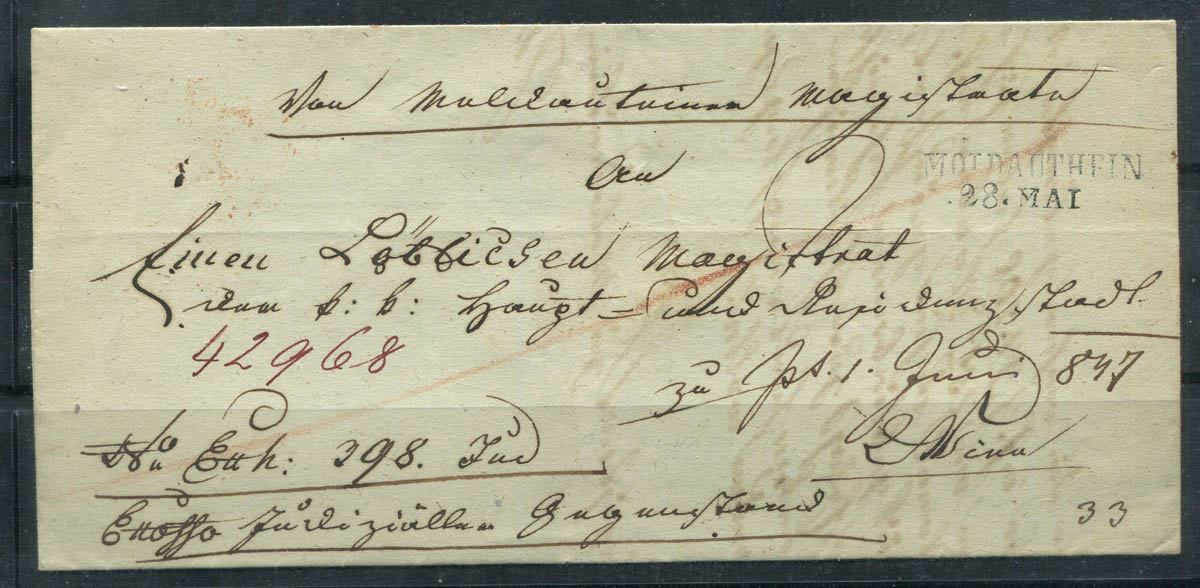 Von Moldauteiner Magistrate
An
MOLDAUTHEIN
28. MAI
Einen Löblichen Magistrat
der k: k: Haupt- und Residenzstadt
42968
zu
Pt. 1. Juni 847
Wien
No Exh: 398. Jud
Justiziäller Gegenstand
33